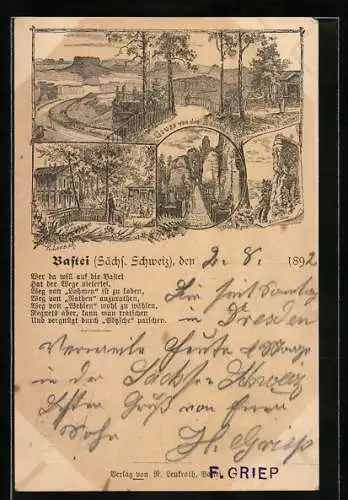 Gruss von der
Bastei (Sächs. Schweiz), den 2. 8. 1892
Wer da will auf die Bastei
Hat der Wege vielerlei.
Weg von „Lohmen“ ist zu loben,
Weg von „Rathen“ anzurathen,
Weg von „Wehlen“ wohl zu wählen,
Regnets aber, kann man tratschen
Und vergnügt durch „Gösche“ patschen.
Bin seit Sonntag
in Dresden
Verweile heute 4 Tage
in der Sächs. Schweiz
Besten Gruß von Euren
Sohn H. Griep
Verlag von R. Leukroth,
F. GRIEP